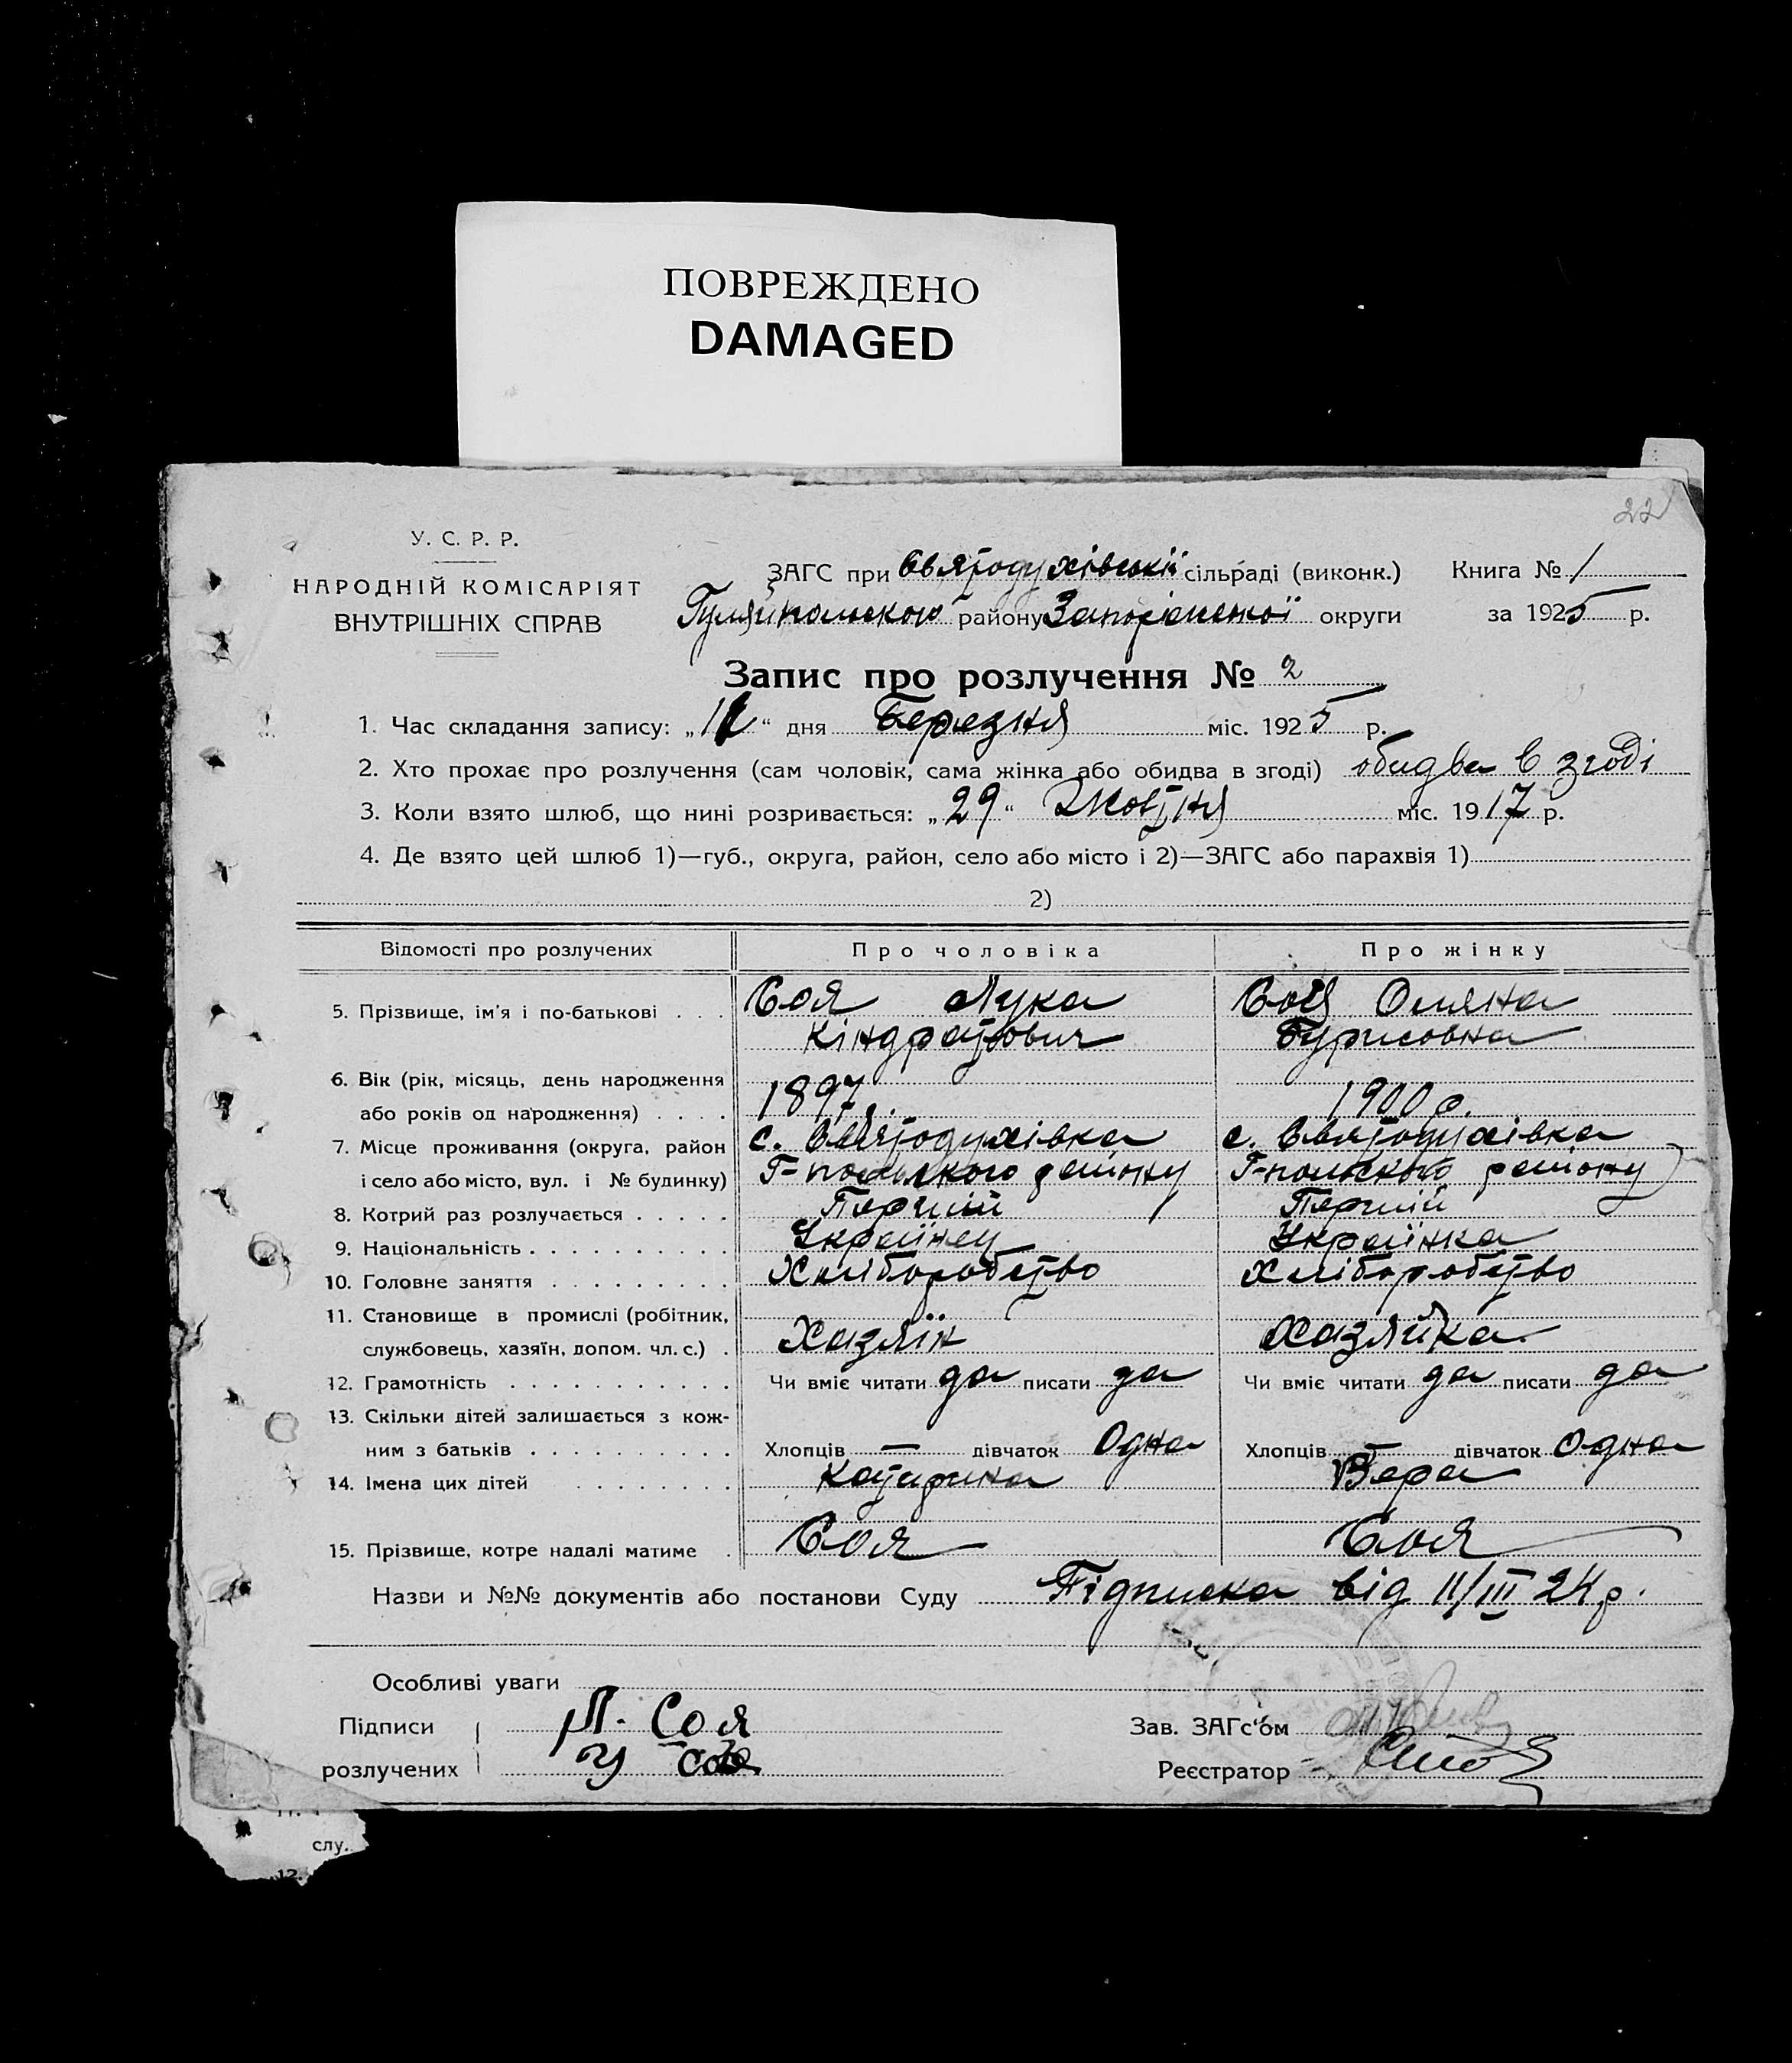 ПОВРЕЖДЕНО
DAMAGED
22
У. С. Р. Р.
НАРОДНІЙ КОМІСАРІЯТ
ВНУТРІШНІХ СПРАВ
ЗАГС при Святодухівській сільраді (виконк.) Книга № 1
Гуляйпольского району Запоріжської округи за 1925 р.
Запис про розлучення № 2
1. Час складання запису: „ “ дня Березня міс. 1925 р.
2. Хто прохає про розлучення (сам чоловік, сама жінка або обидва в згоді) обидва в згоді
3. Коли взято шлюб, що нині розривається: „29“ Жовтня міс. 1917 р.
4. Де взято цей шлюб 1)—губ., округа, район, село або місто і 2)—ЗАГС або парахвія 1)
2)
Відомості про розлучених Про чоловіка Про жінку
5. Прізвище, ім'я і по-батькові . . . Соя Лука Соя Оляна
Кіндратович Бурисовна
6. Вік (рік, місяць, день народження
або років од народження) . . . . 1897 1900 р.
7. Місце проживання (округа, район с. Святодухівка с. Святодухівка
і село або місто, вул. і № будинку) Г-польского району Г-польского району
8. Котрий раз розлучається . . . . . Перший Перший
9. Національність . . . . . . . . . . Українец Українка
10. Головне заняття . . . . . . . . . Хліборобство Хліборобство
11. Становище в промислі (робітник,
службовець, хазяїн, допом. чл. с.) . Хазяїн Хазяйка
12. Грамотність . . . . . . . . . . . Чи вміє читати да писати да Чи вміє читати да писати да
13. Скільки дітей залишається з кож-
ним з батьків . . . . . . . . . . Хлопців — дівчаток Одна Хлопців — дівчаток Одна
14. Імена цих дітей . . . . . . . Катирина Вера
15. Прізвище, котре надалі матиме . Соя Соя
Назви и №№ документів або постанови Суду Підписка від 11/III 24 р.
Особливі уваги
Підписи Л. Соя Зав. ЗАГс'ом
розлучених У Соя Реєстратор
слу.
12.